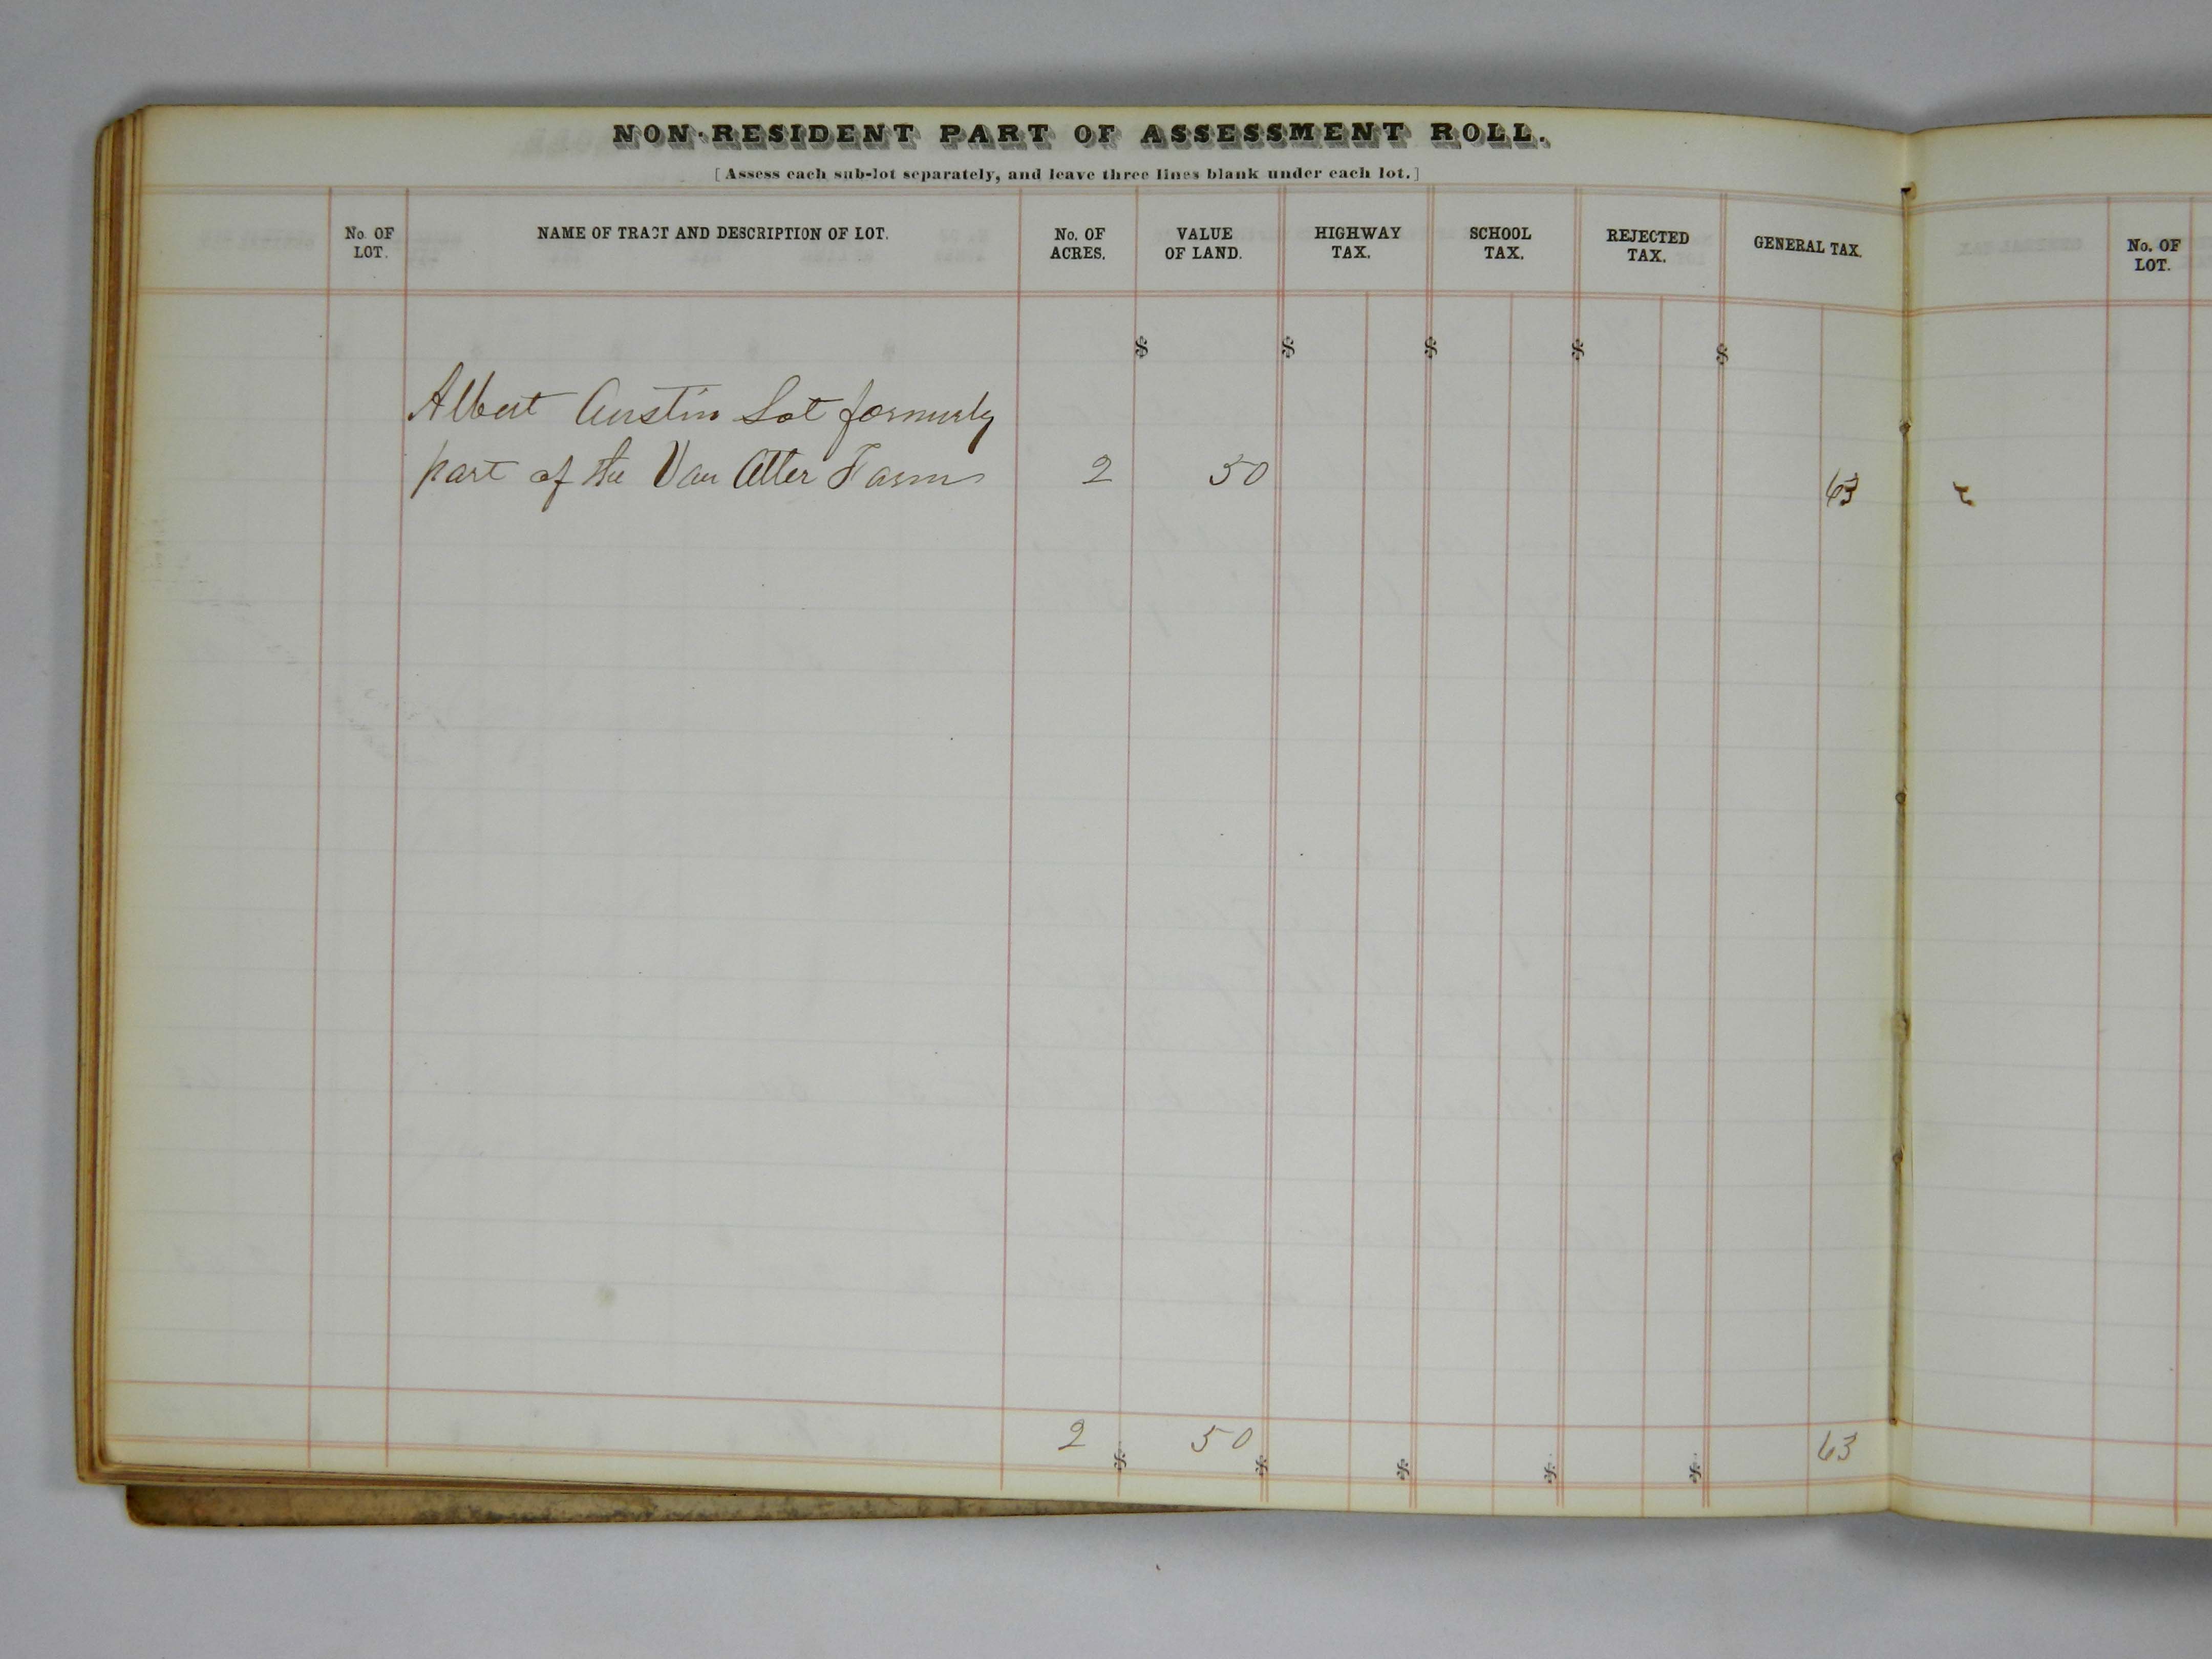 NON-RESIDENT PART OF ASSESSMENT ROLL.
[Assess each sub-lot separately, and leave three lines blank under each lot.]
No. OF LOT. NAME OF TRACT AND DESCRIPTION OF LOT. No. OF ACRES. VALUE OF LAND. HIGHWAY TAX. SCHOOL TAX. REJECTED TAX. GENERAL TAX. No. OF LOT.
$ $ $ $ $
Albert Austin Lot formerly
part of the Van Atter Farm 2 50 63
2 $ 50 $ $ $ $ 63